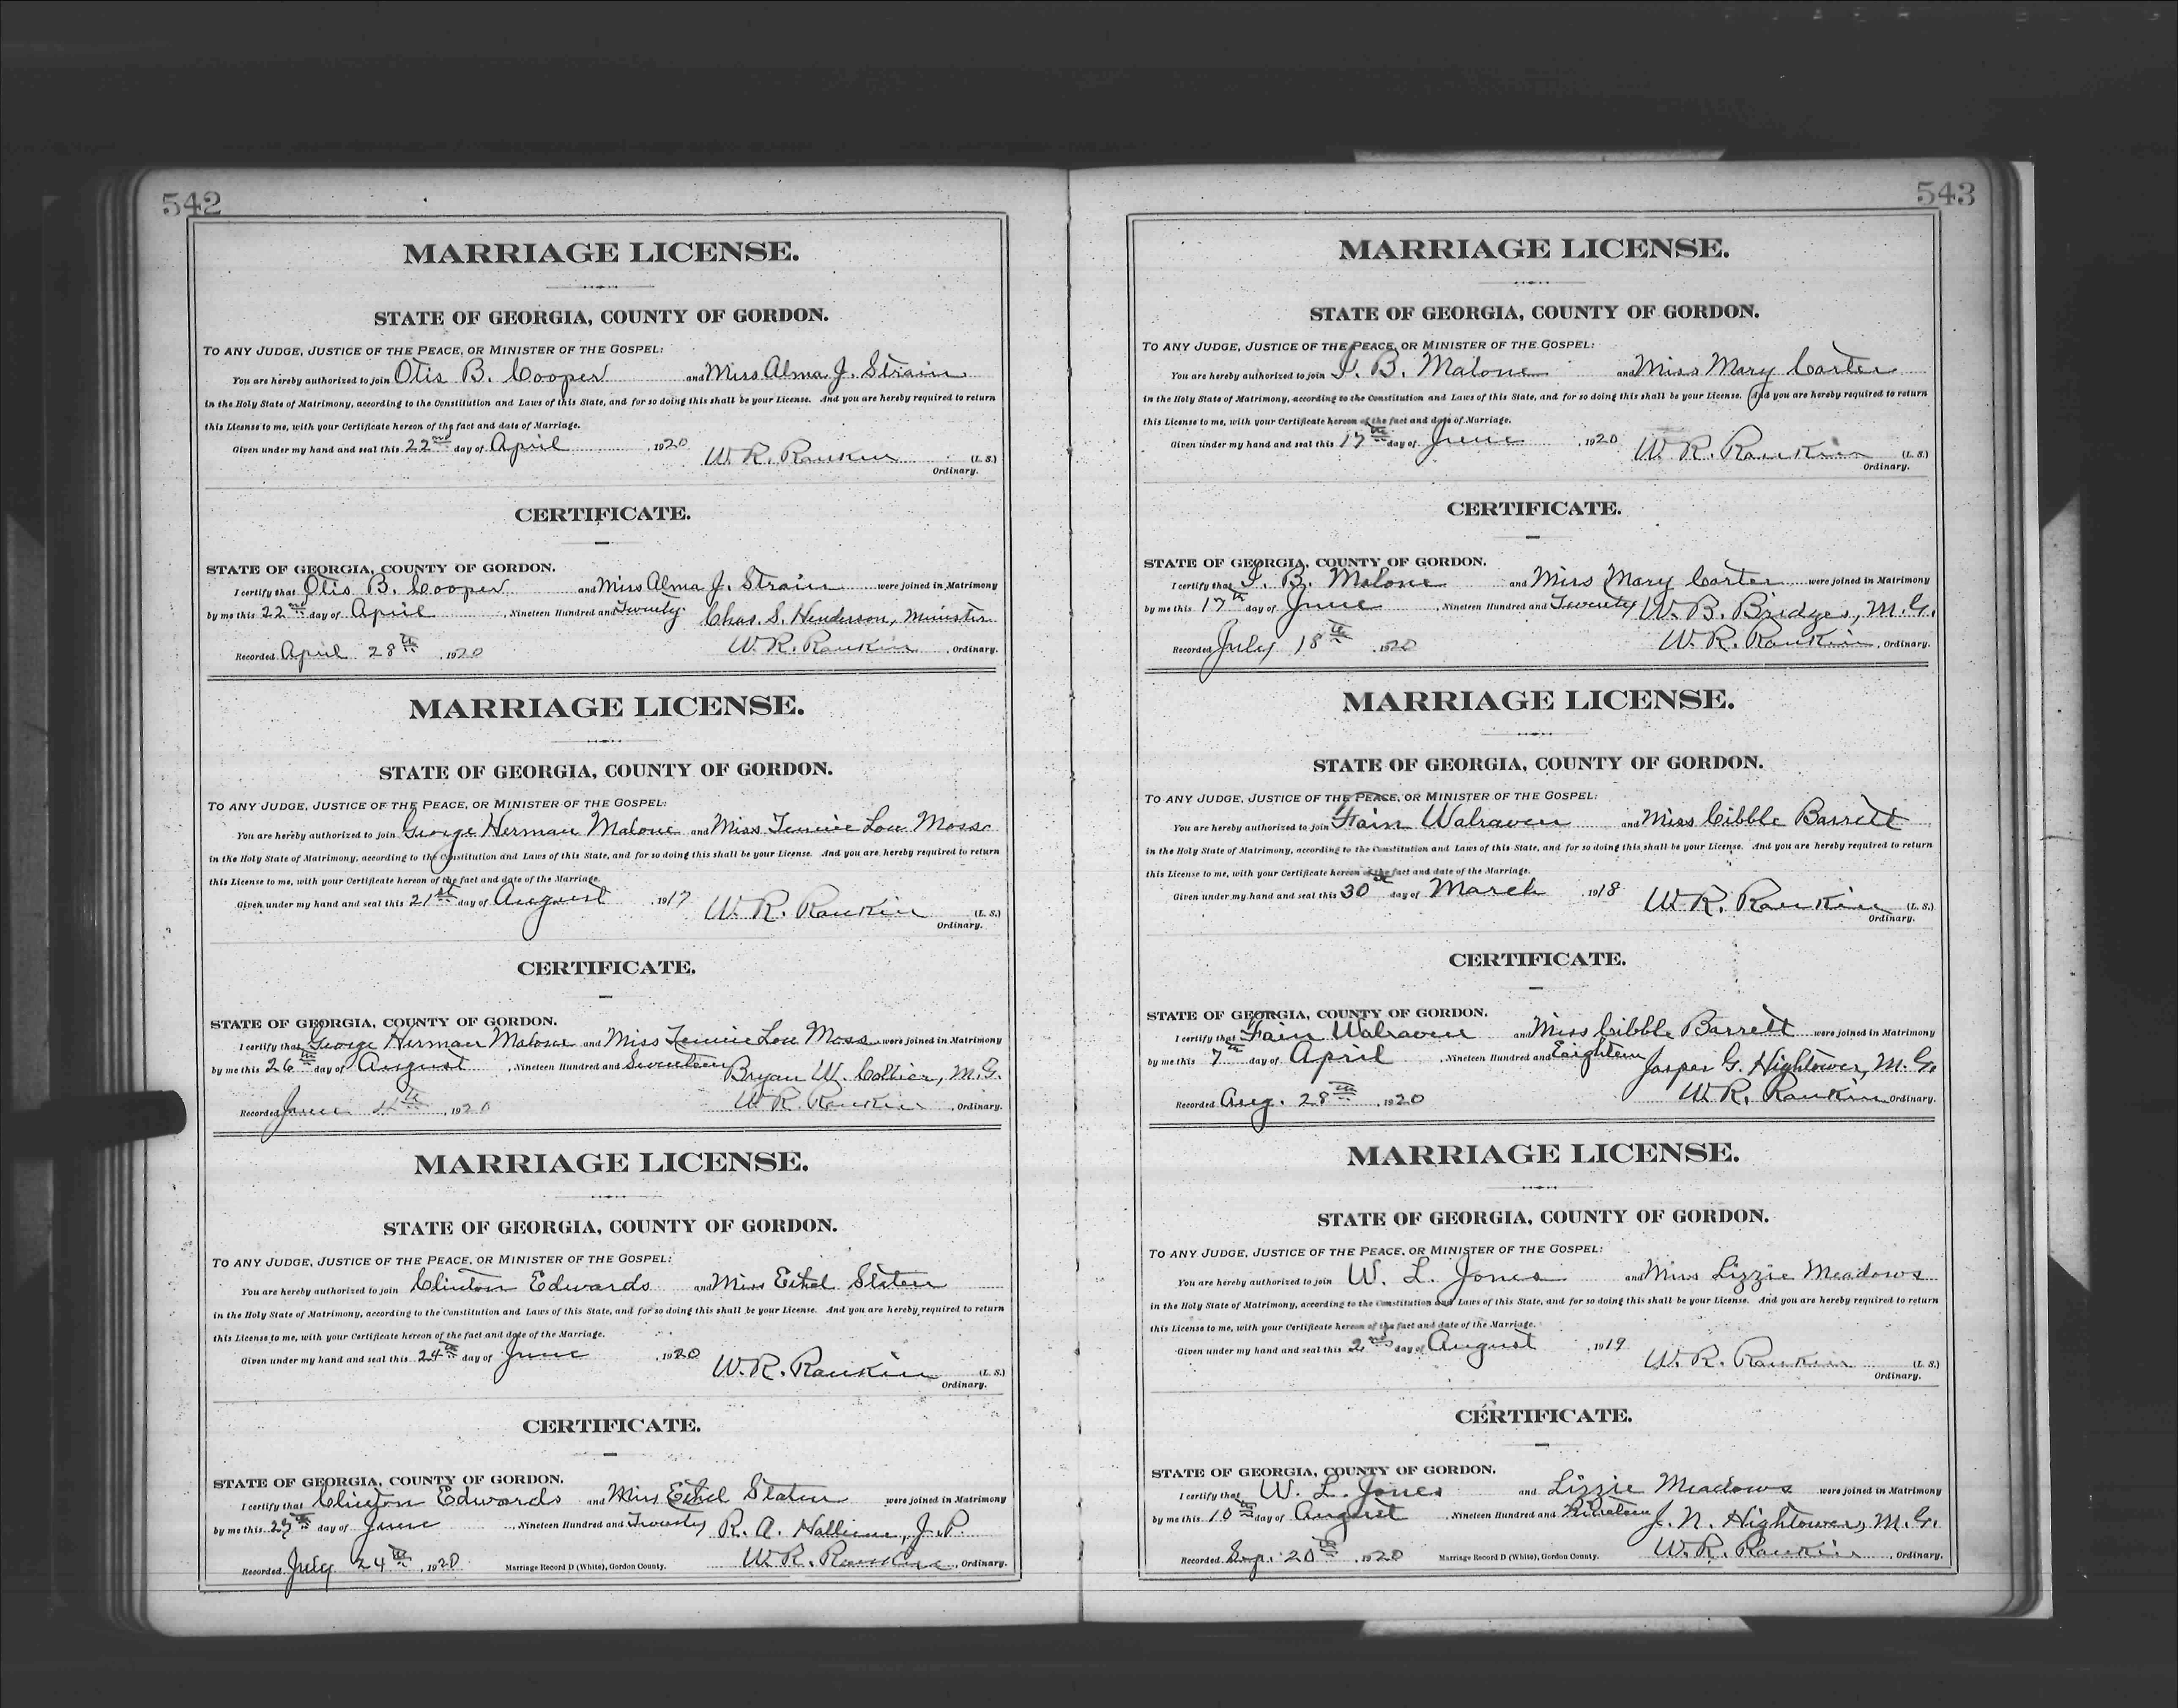 542
MARRIAGE LICENSE.
STATE OF GEORGIA, COUNTY OF GORDON.
TO ANY JUDGE, JUSTICE OF THE PEACE, OR MINISTER OF THE GOSPEL:
You are hereby authorized to join Otis B. Cooper and Miss Alma J. Strain
in the Holy State of Matrimony, according to the Constitution and Laws of this State, and for so doing this shall be your License. And you are hereby required to return
this License to me, with your Certificate hereon of the fact and date of Marriage.
Given under my hand and seal this 22nd day of April, 1920 W. R. Rankin (L. S.)
Ordinary.
CERTIFICATE.
STATE OF GEORGIA, COUNTY OF GORDON.
I certify that Otis B. Cooper and Miss Alma J. Strain were joined in Matrimony
by me this 22nd day of April, Nineteen Hundred and Twenty. Chas. S. Henderson, Minister
Recorded April 28th, 1920 W. R. Rankin, Ordinary.
MARRIAGE LICENSE.
STATE OF GEORGIA, COUNTY OF GORDON.
TO ANY JUDGE, JUSTICE OF THE PEACE, OR MINISTER OF THE GOSPEL:
You are hereby authorized to join George Herman Malone and Miss Lou Moss
in the Holy State of Matrimony, according to the Constitution and Laws of this State, and for so doing this shall be your License. And you are hereby required to return
this License to me, with your Certificate hereon of the fact and date of the Marriage.
Given under my hand and seal this 21st day of August, 1917 W. R. Rankin (L. S.)
Ordinary.
CERTIFICATE.
STATE OF GEORGIA, COUNTY OF GORDON.
I certify that George Herman Malone and Miss Lou Moss were joined in Matrimony
by me this 26th day of August, Nineteen Hundred and Seventeen Bryan W. Collier, M. G.
Recorded June 4th, 1920 W. R. Rankin, Ordinary.
MARRIAGE LICENSE.
STATE OF GEORGIA, COUNTY OF GORDON.
TO ANY JUDGE, JUSTICE OF THE PEACE, OR MINISTER OF THE GOSPEL:
You are hereby authorized to join Clinton Edwards and Miss Ethel Slaten
in the Holy State of Matrimony, according to the Constitution and Laws of this State, and for so doing this shall be your License. And you are hereby required to return
this License to me, with your Certificate hereon of the fact and date of the Marriage.
Given under my hand and seal this 24th day of June, 1920 W. R. Rankin (L. S.)
Ordinary.
CERTIFICATE.
STATE OF GEORGIA, COUNTY OF GORDON.
I certify that Clinton Edwards and Miss Ethel Slaten were joined in Matrimony
by me this day of June, Nineteen Hundred and Twenty R. A. J. P.
Recorded July 24th, 1920 Marriage Record D (White), Gordon County. W. R. Rankin, Ordinary.
543
MARRIAGE LICENSE.
STATE OF GEORGIA, COUNTY OF GORDON.
TO ANY JUDGE, JUSTICE OF THE PEACE, OR MINISTER OF THE GOSPEL:
You are hereby authorized to join B. Malone and Miss Mary Carter
in the Holy State of Matrimony, according to the Constitution and Laws of this State, and for so doing this shall be your License. And you are hereby required to return
this License to me, with your Certificate hereon of the fact and date of Marriage.
Given under my hand and seal this 17th day of June, 1920 W. R. Rankin (L. S.)
Ordinary.
CERTIFICATE.
STATE OF GEORGIA, COUNTY OF GORDON.
I certify that B. Malone and Miss Mary Carter were joined in Matrimony
by me this 17th day of June, Nineteen Hundred and Twenty W. B. Bridges, M. G.
Recorded July 18th, 1920 W. R. Rankin, Ordinary.
MARRIAGE LICENSE.
STATE OF GEORGIA, COUNTY OF GORDON.
TO ANY JUDGE, JUSTICE OF THE PEACE, OR MINISTER OF THE GOSPEL:
You are hereby authorized to join Fain Walraven and Miss Cibble Barrett
in the Holy State of Matrimony, according to the Constitution and Laws of this State, and for so doing this shall be your License. And you are hereby required to return
this License to me, with your Certificate hereon of the fact and date of the Marriage.
Given under my hand and seal this 30 day of March, 1918 W. R. Rankin (L. S.)
Ordinary.
CERTIFICATE.
STATE OF GEORGIA, COUNTY OF GORDON.
I certify that Fain Walraven and Miss Cibble Barrett were joined in Matrimony
by me this 7th day of April, Nineteen Hundred and Eighteen Jasper G. Hightower, M. G.
Recorded Aug. 28th, 1920 W. R. Rankin Ordinary.
MARRIAGE LICENSE.
STATE OF GEORGIA, COUNTY OF GORDON.
TO ANY JUDGE, JUSTICE OF THE PEACE, OR MINISTER OF THE GOSPEL:
You are hereby authorized to join W. L. Jones and Miss Lizzie Meadows
in the Holy State of Matrimony, according to the Constitution and Laws of this State, and for so doing this shall be your License. And you are hereby required to return
this License to me, with your Certificate hereon of the fact and date of the Marriage.
Given under my hand and seal this 2nd day of August, 1919 W. R. Rankin (L. S.)
Ordinary.
CERTIFICATE.
STATE OF GEORGIA, COUNTY OF GORDON.
I certify that W. L. Jones and Lizzie Meadows were joined in Matrimony
by me this 10th day of August, Nineteen Hundred and Nineteen J. N. Hightower, M. G.
Recorded Sep. 20th, 1920 Marriage Record D (White), Gordon County. W. R. Rankin, Ordinary.